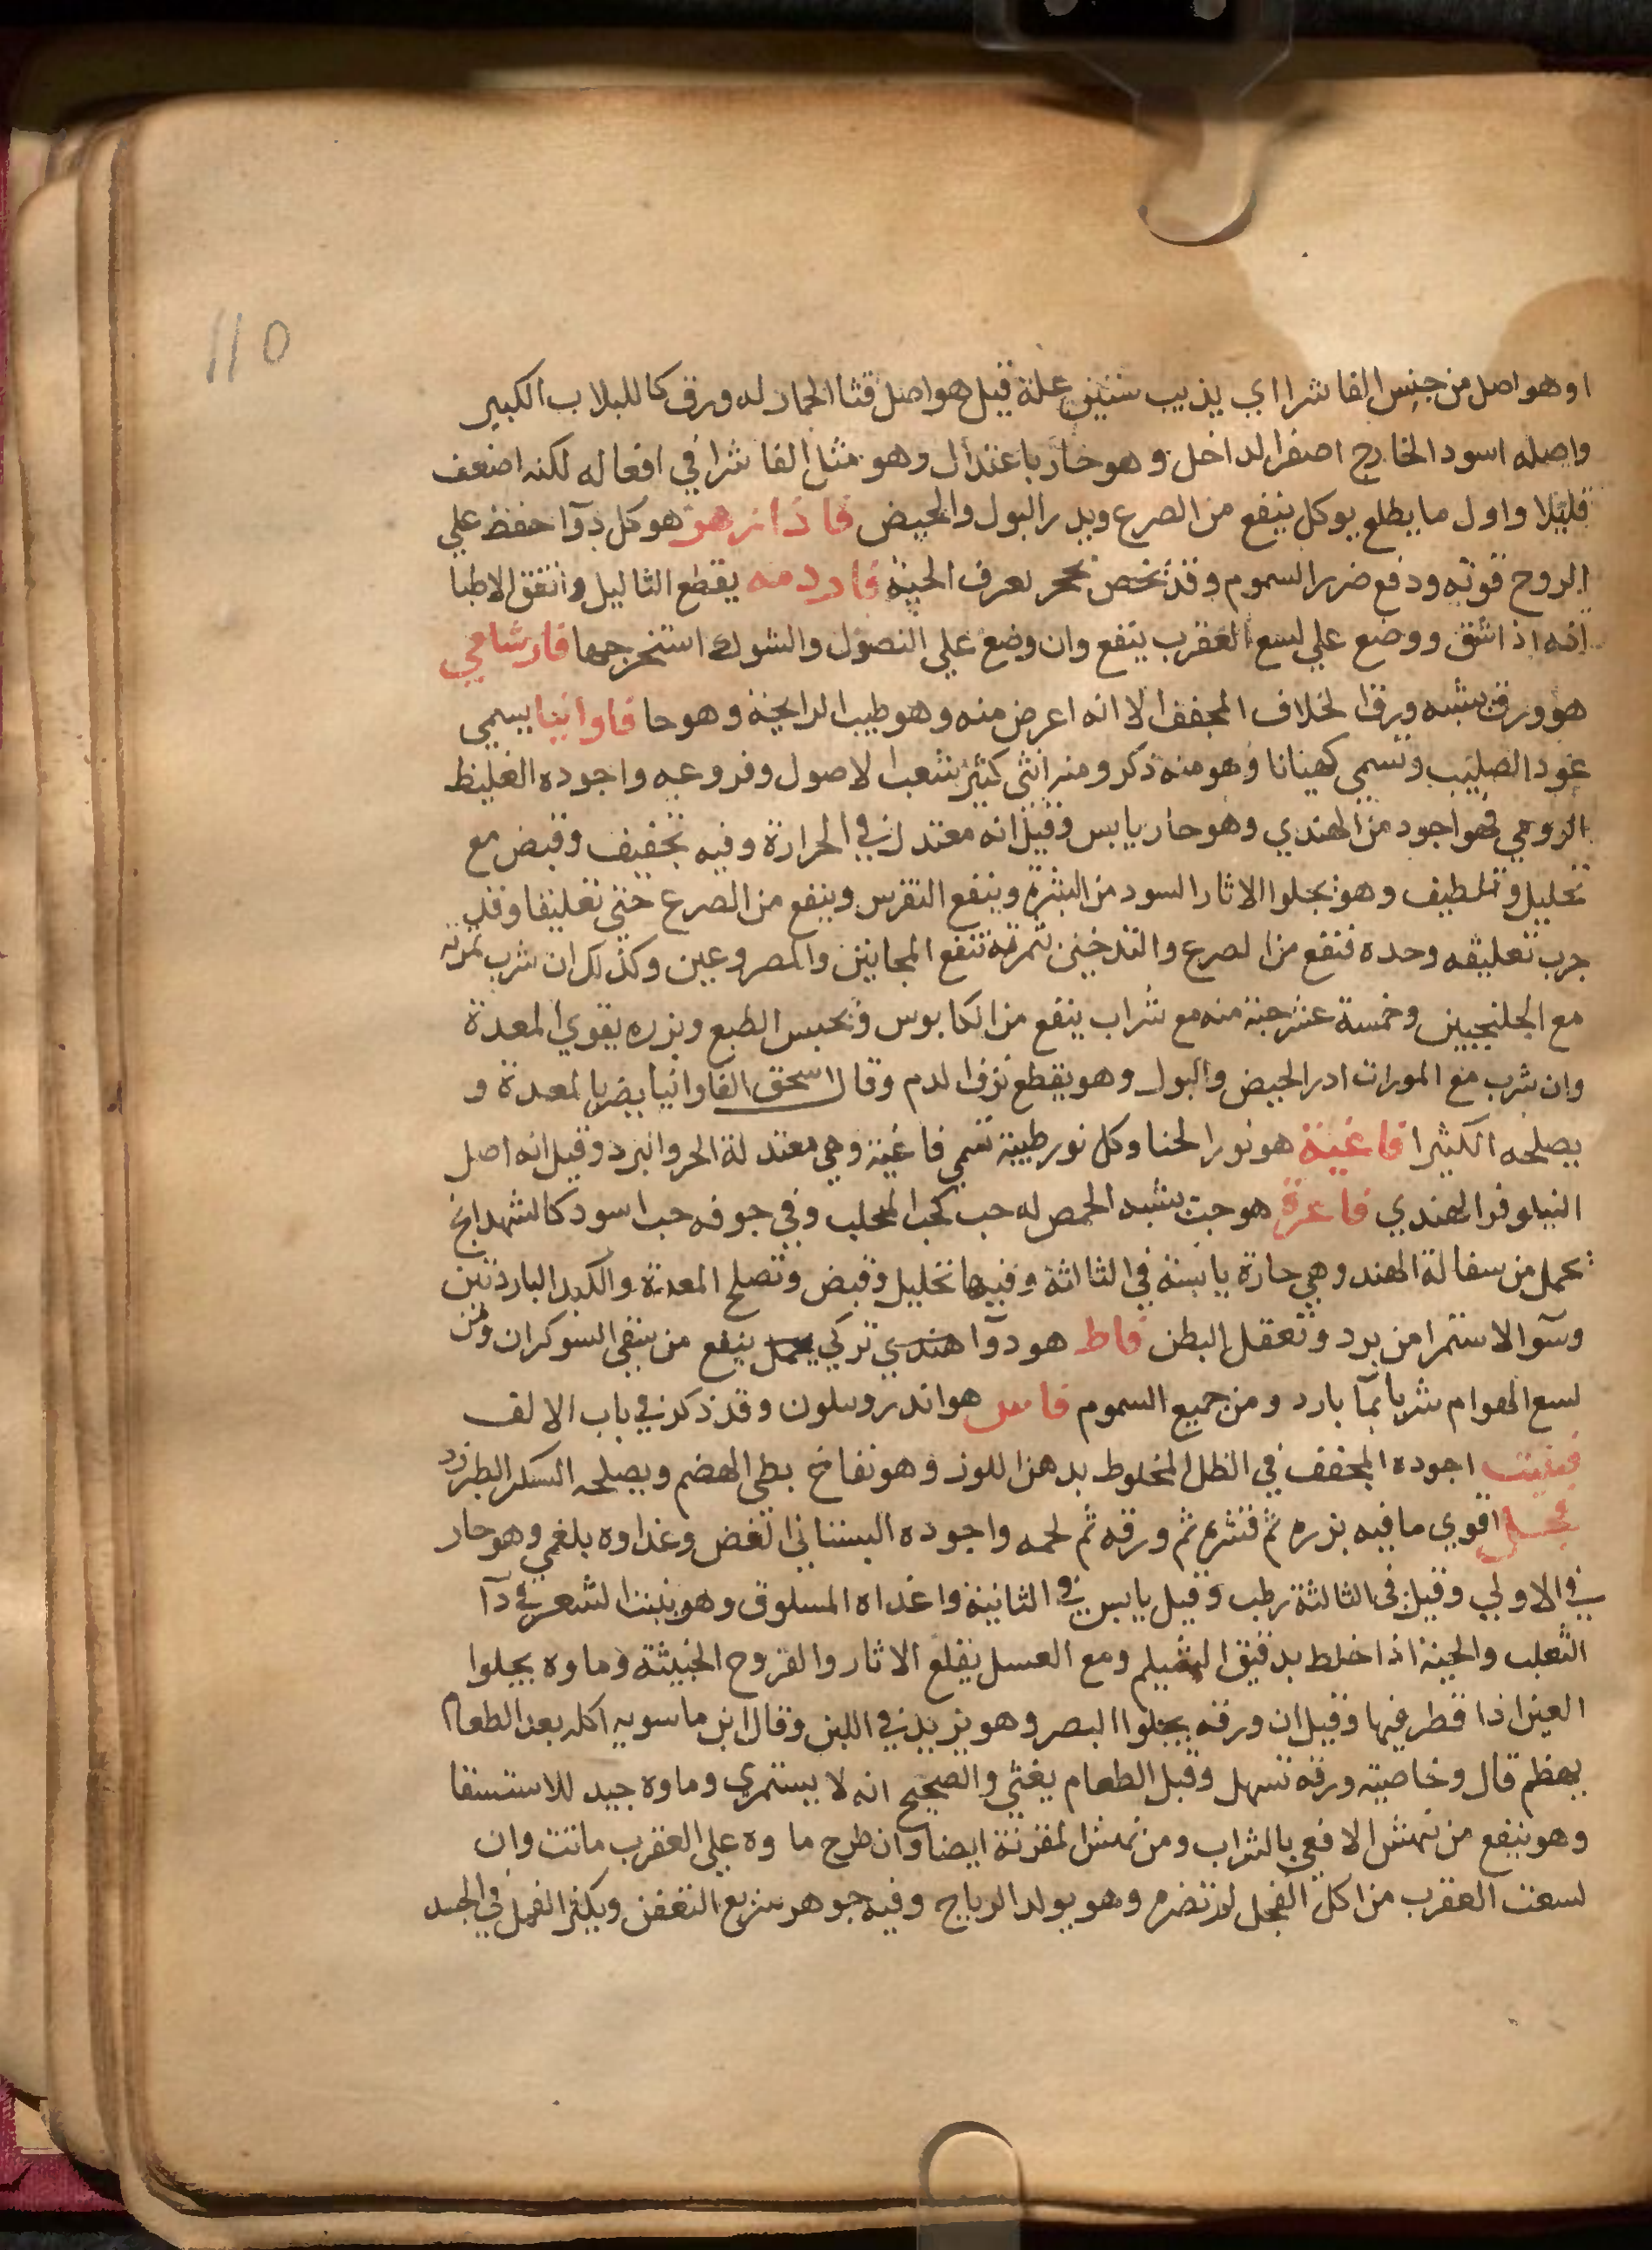 110
او هو اصل من جنس الفاشرا اي يذيب ستين علة قيل هو اصل قثا الحمار له ورق كاللبلاب الكبير
واصله اسود الخارج اصفر الداخل وهو حار باعتدال وهو مثل الفاشرا في افعاله لكنه اضعف
قليلا واول ما يطلع يوكل ينفع من الصرع ويدر البول والحيض فاذازهر هو كل دوآ حفظ علي
الروح قوته ودفع ضرر السموم وقد يخص بحجر يعرف الحية فاردمه يقطع الثاليل واتفق الاطبا
انه اذا شق ووضع علي لسع العقرب ينفع وان وضع علي النصول والشوك استخرجها فارشامي
هو ورق يشبه ورق الخلاف المجفف الا انه اعرض منه وهو طيب الرايحة وهو حا فاوانيا يسمي
عود الصليب وتسمي كهيانا وهو منه ذكر ومنه انثي كثير شعب الاصول وفروعه واجوده الغليظ
الرومي فهو اجود من الهندي وهو حار يابس وقيل انه معتدل في الحرارة وفيه تجفيف وقبض مع
تحليل وتلطيف وهو يجلوا الاثار السود من البشرة وينفع النقرس وينفع من الصرع حتي تعليقا وقد
جرب تعليقه وحده فنفع من الصرع والتدخين بثمرته تنفع المجانين والمصروعين وكذلك ان شرب ثمرته
مع الجلنجبين وخمسة عشر حبة منه مع شراب ينفع من الكابوس وتحبس الطبع وبزره يقوي المعدة
وان شرب مع المدرات ادر الحيض والبول وهو يقطع نزف الدم وقال اسحق الفاوانيا يضر بالمعدة و
يصلحه الكثيرا فاغية هو نور الحنا وكل نور طيبة تسمي فاغية وهي معتدلة الحر والبرد وقيل انه اصل
النيلوفر الهندي فاغرة هو حب يشبه الحمص له حب كحب المحلب وفي جوفه حب اسود كالشهدانج
يحمل من سفالة الهند وهي حارة يابسة في الثالثة وفيها تحليل وقبض وتصلح المعدة والكبد الباردتين
وسوآ الاستمرا من برد وتعقل البطن فاط هو دوآ هندي تركي يحمل ينفع من سقي السوكران ومن
لسع الهوام شربا بمآ بارد ومن جميع السموم هو اندروسلون وقد ذكر في باب الالف
اجوده المجفف في الظل المخلوط بدهن اللوز وهو نفاخ بطي الهضم ويصلحه السكر الطبرزد
فجل اقوي ما فيه بزره ثم قشره ثم ورقه ثم لحمه واجوده البستاني الغض وغداوه بلغمي وهو حار
في الاولي وقيل في الثالثة رطب وقيل يابس في الثانية واغداه المسلوق وهو ينبت الشعر في دآ
الثعلب والحية اذا خلط بدقيق الشيلم ومع العسل يقلع الاثار والقروح الخبيثة وماوه يجلوا
العين اذا قطر فيها وقيل ان ورقه يجلوا البصر وهو يزيد في اللبن وقال ابن ماسويه اكله بعد الطعام
يهضم قال وخاصيته ورقه تسهل وقبل الطعام يغثي والصحيح انه لا يستمري وماوه جيد للاستسقا
وهو ينفع من نهش الافعي بالشراب ومن نهش المقرنة ايضا وان طرح ماوه علي العقرب ماتت وان
لسعت العقرب من اكل الفجل لم تضره وهو يولد الرياح وفيه جوهر سريع التعفن ويكثر القمل في الجسد